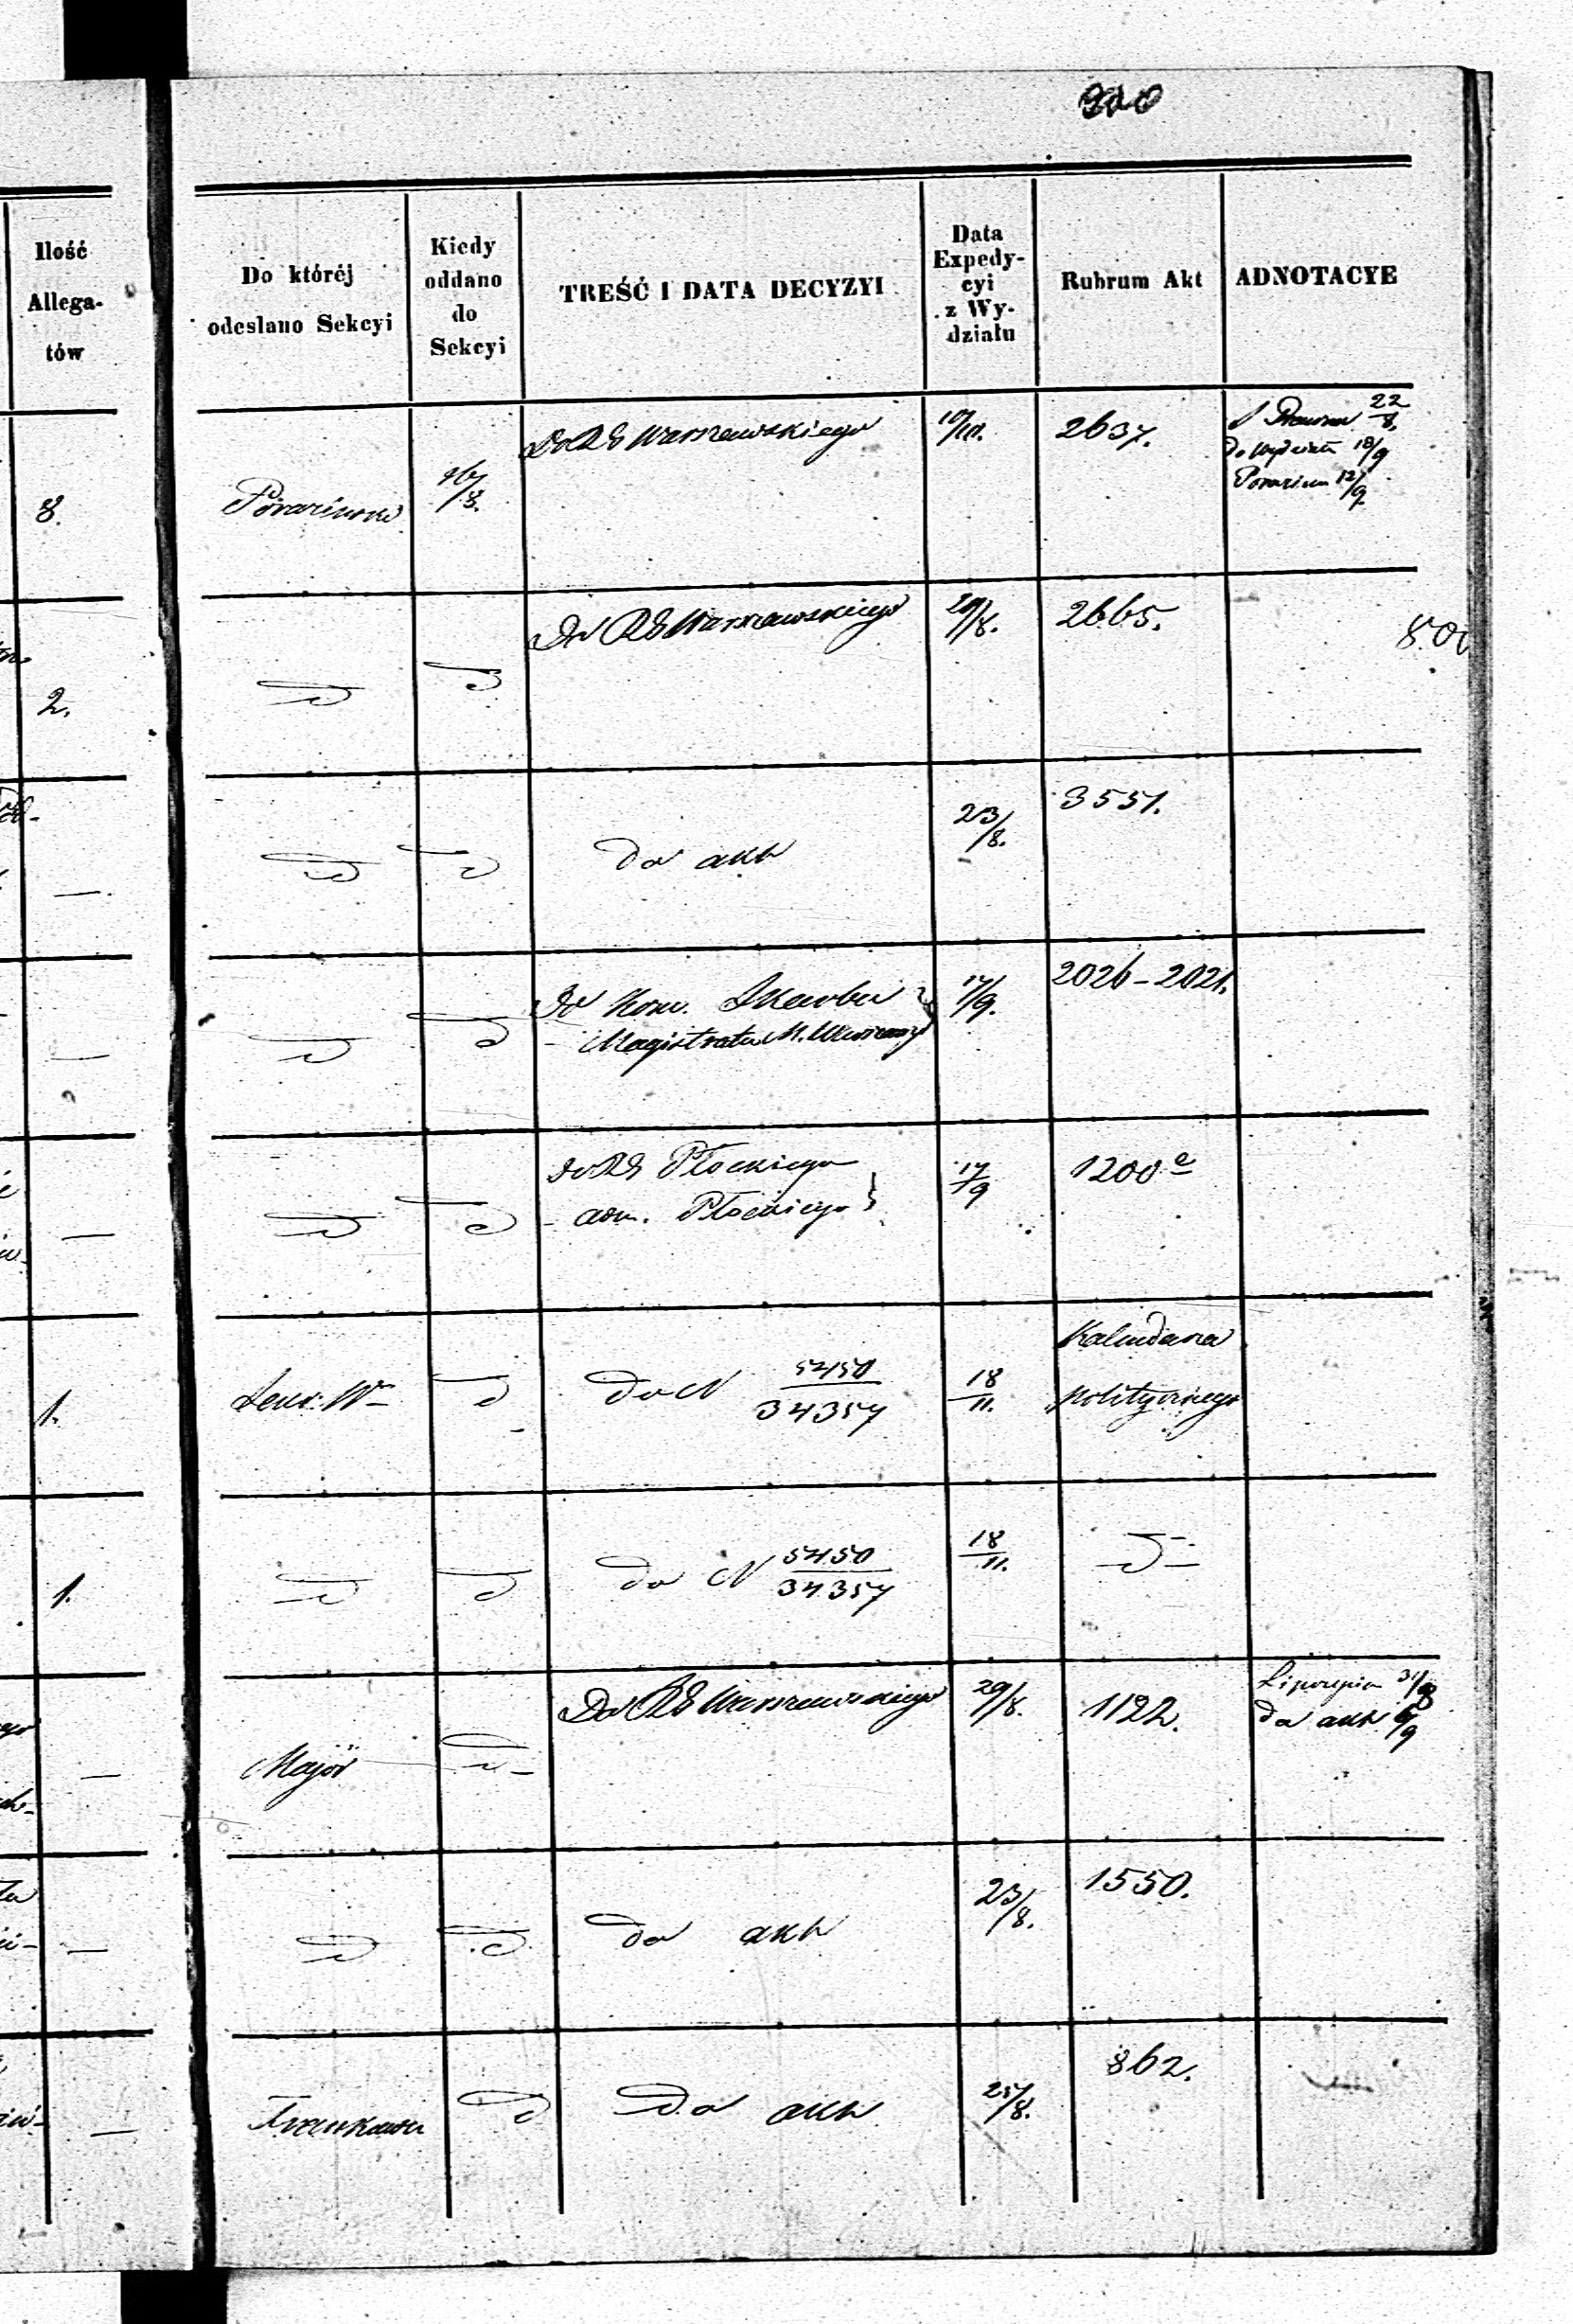 200
Ilość
Allega-
tów
Do któréj
odesłano Sekcyi
Kiedy
oddano
do
Sekcyi
TREŚĆ I DATA DECYZYI
Data
Expedy-
cyi
z Wy-
działu
Rubrum Akt
ADNOTACYE
8.
26/8.
Do RG Warszawskiego
10/10.
2637.
22/8.
do Wydziału 18/9
12/9.
2.
Do RG Warszawskiego
29/8.
2665.
do akt
23/8.
3551.
Do Kom. Skarbu
- Magistratu M. Warszawy
17/9.
2026-2021.
do RG Płockiego
- adm. Płockiego
17/9
1200 e
1.
do N 5450/34357
18/11.
Kalendarza
politycznego
1.
do N 5450/34357
18/11.
Major
Do RG Warszawskiego
29/8.
1122.
31/8
do akt 6/9
do akt
23/8.
1550.
do akt
25/8.
862.